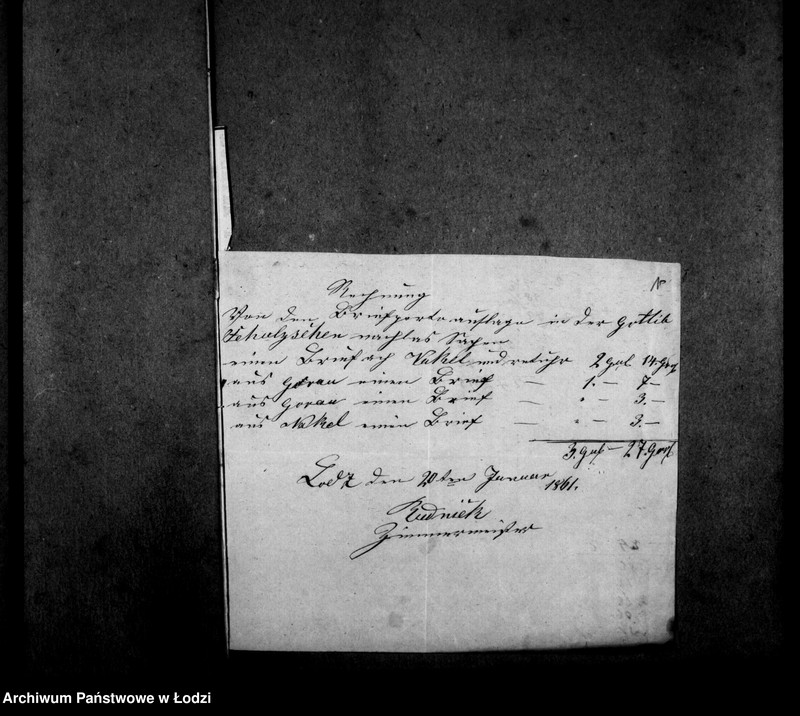 Rechnung
Von den Briefporto auslage in der Gottlib
Schulzschen nachlas Sachen
einen Brief ach Nakel und retuhr 2 gul 14 gr
aus Goran einen Brief — 1. — 7 —
aus Goran einen Brief — " — 3. —
aus Nakel einen Brief — " — 3. —
3. gul — 27. gr
Lodz den 20ten Januar
1861.
Rudnick
Zimmermeister
Archiwum Państwowe w Łodzi